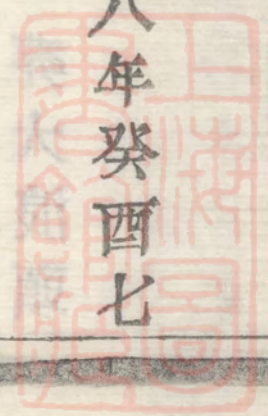 八年癸酉七
上海圖
書館藏